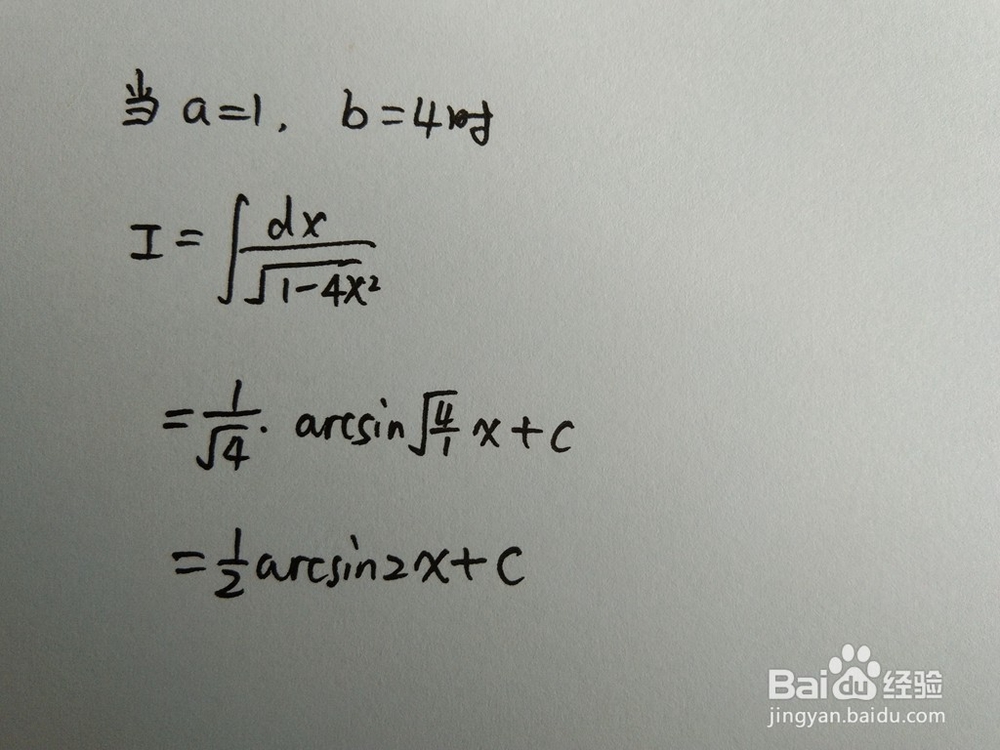 当 a=1, b=4时
I = ∫ dx / √(1-4x²)
= 1/√4 · arcsin √(4/1) x + c
= 1/2 arcsin2x + c
Bai du 经验
jingyan.baidu.com